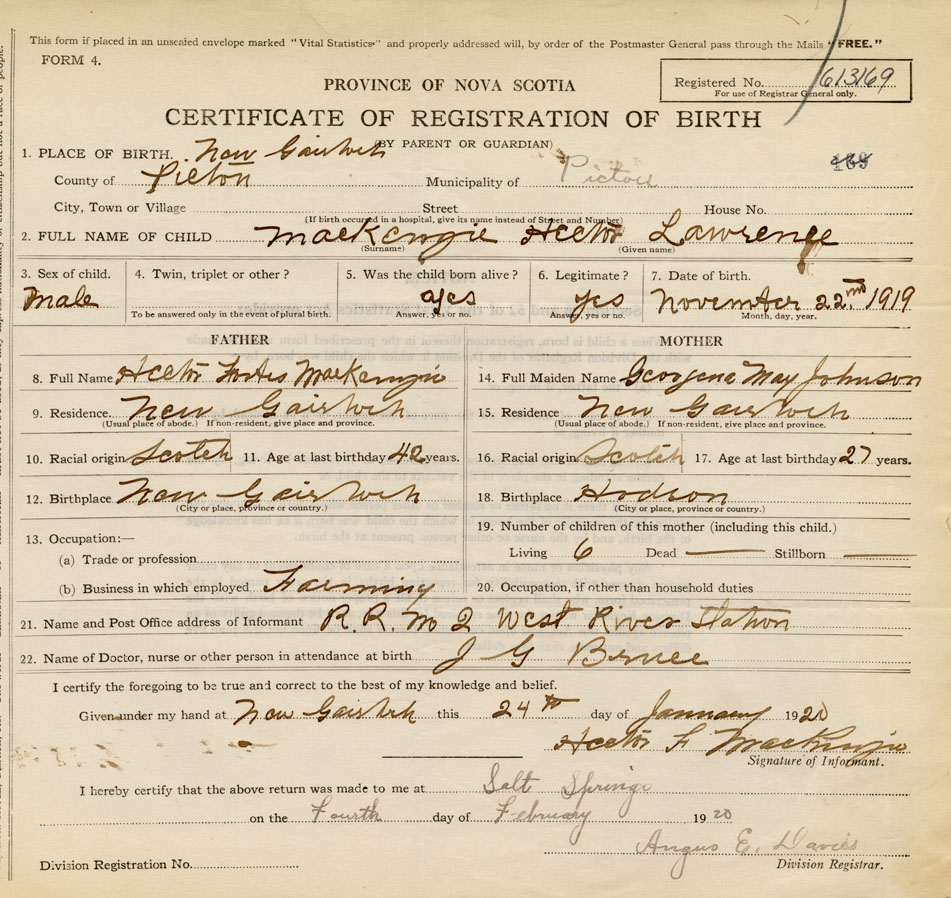 This form if placed in an unsealed envelope marked "Vital Statistics" and properly addressed will, by order of the Postmaster General pass through the Mails "FREE."
FORM 4.
PROVINCE OF NOVA SCOTIA
Registered No. 613169
For use of Registrar General only.
CERTIFICATE OF REGISTRATION OF BIRTH
(BY PARENT OR GUARDIAN)
1. PLACE OF BIRTH. New Gairloch
County of Picton Municipality of Pictou
City, Town or Village Street House No.
(If birth occurred in a hospital, give its name instead of Street and Number)
2. FULL NAME OF CHILD MacKenzie Hector Lawrence
(Surname) (Given name)
3. Sex of child. 4. Twin, triplet or other? 5. Was the child born alive? 6. Legitimate? 7. Date of birth.
Male yes yes November 22nd 1919
To be answered only in the event of plural birth. Answer, yes or no. Answer, yes or no. Month, day, year.
FATHER MOTHER
8. Full Name Hector Forbes MacKenzie 14. Full Maiden Name Georgena May Johnson
9. Residence. New Gairloch 15. Residence New Gairloch
(Usual place of abode.) If non-resident, give place and province. (Usual place of abode.) If non-resident, give place and province.
10. Racial origin Scotch 11. Age at last birthday 42 years. 16. Racial origin Scotch 17. Age at last birthday 27 years.
12. Birthplace New Gairloch 18. Birthplace Hodson
(City or place, province or country.) (City or place, province or country.)
13. Occupation:— 19. Number of children of this mother (including this child.)
(a) Trade or profession Living 6 Dead — Stillborn —
(b) Business in which employed Farming 20. Occupation, if other than household duties
21. Name and Post Office address of Informant R. R. No 2 West River Station
22. Name of Doctor, nurse or other person in attendance at birth J G Bruce
I certify the foregoing to be true and correct to the best of my knowledge and belief.
Given under my hand at New Gairloch this 24th day of January 1920
Hector F MacKenzie
Signature of Informant.
I hereby certify that the above return was made to me at Salt Springs
on the Fourth day of February 1920
Angus E. Davies
Division Registration No. Division Registrar.